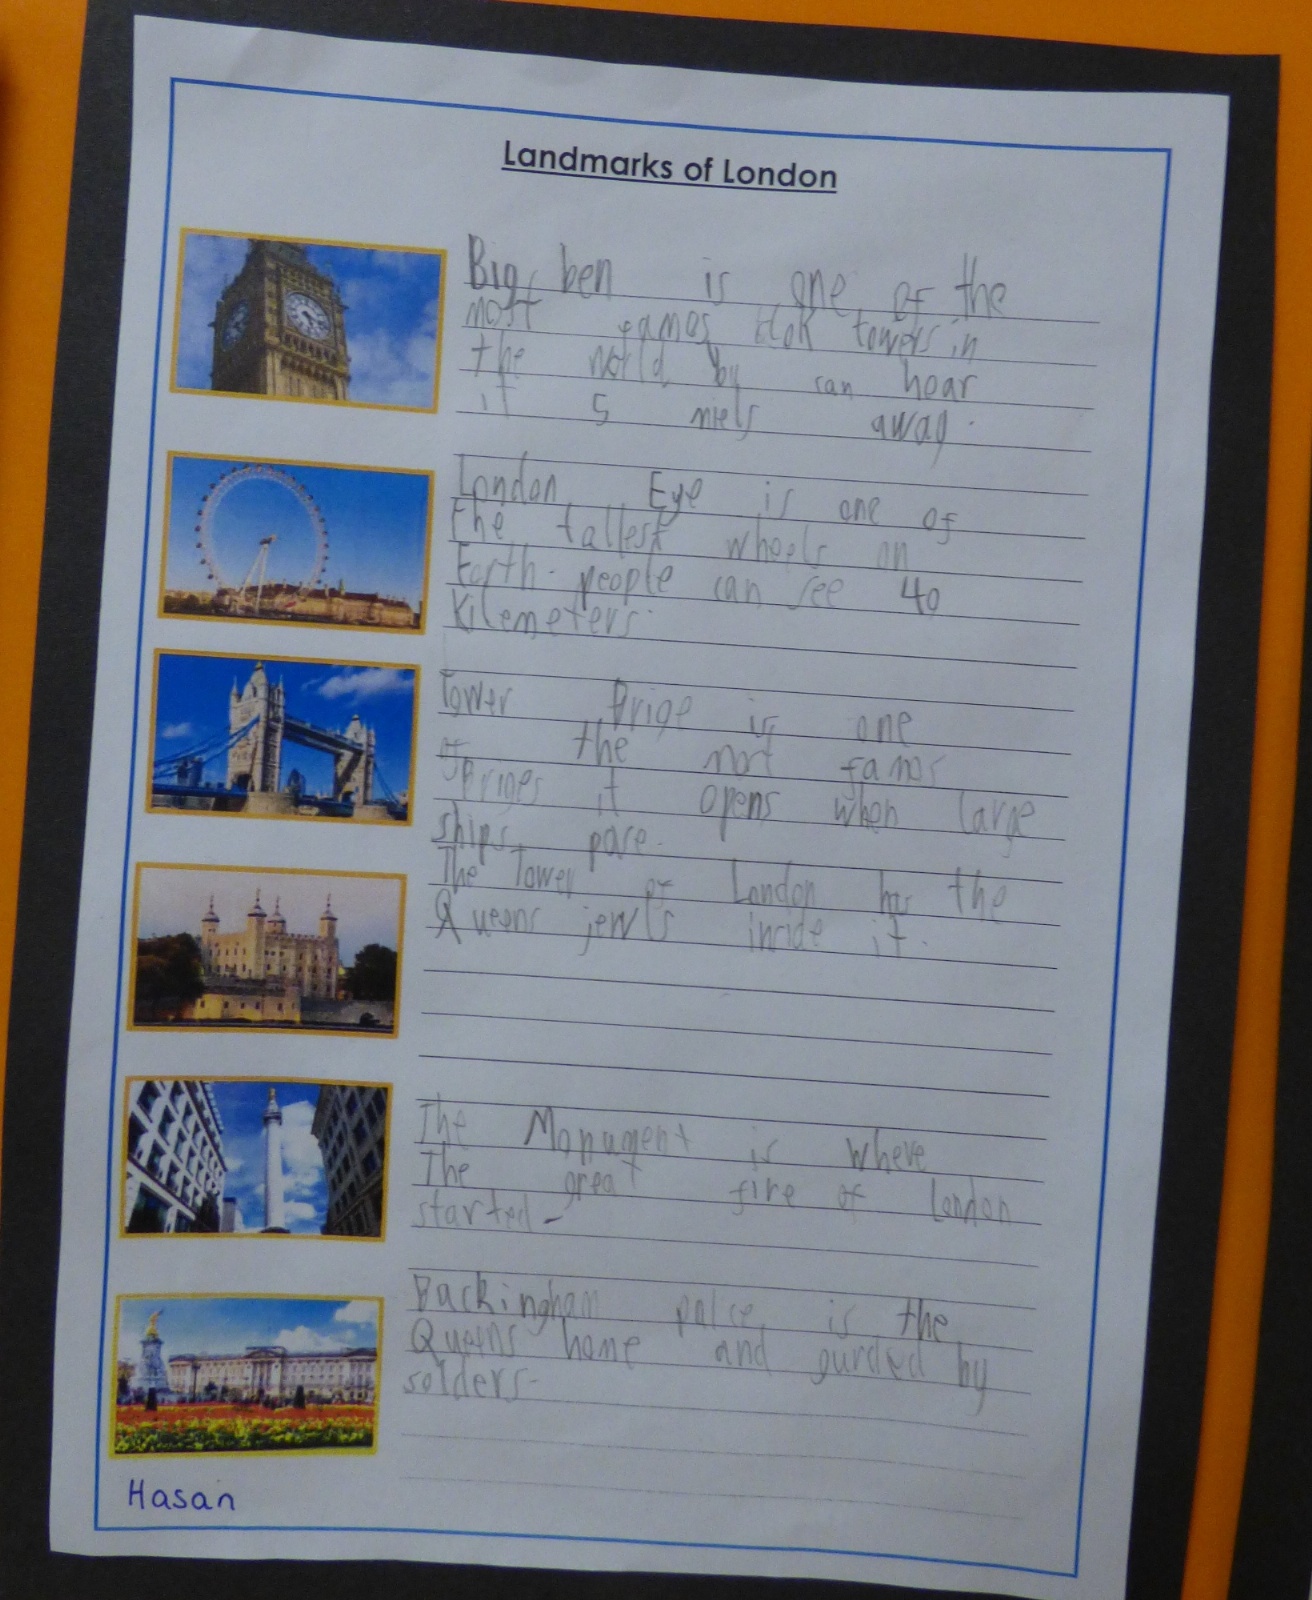 Landmarks of London
Big ben is one of the
most famos klok towers in
the world by can hear
it 5 miels away.
London Eye is one of
the tallest wheels on
Earth. people can see 40
Kilemeters.
Tower Brige is one
of the most famos
Briges it opens when large
ships pase.
The Tower of London has the
Queens jewls inside it.
The Monument is where
The great fire of London
started.
Backingham palce is the
Queens home and gurded by
solders.
Hasan